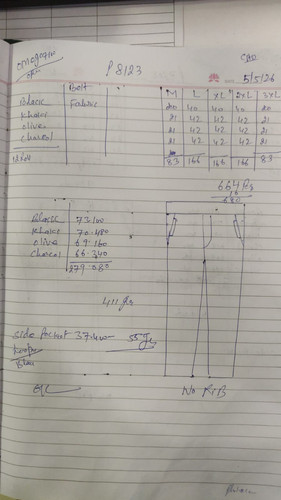 P 8123
5/5/26
Belt
Fabric M L XL 2XL 3XL
Black 20 40 40 40 20
Khaki 21 42 42 42 21
olive 21 42 42 42 21
charcol 21 42 42 42 21
83 166 166 166 83
664 Pcs
Black 73.100
Khaki 70.480
olive 69.160
charcol 66.340
279.080
411 gr
side Pocket 37.400 55 gr
No RIB